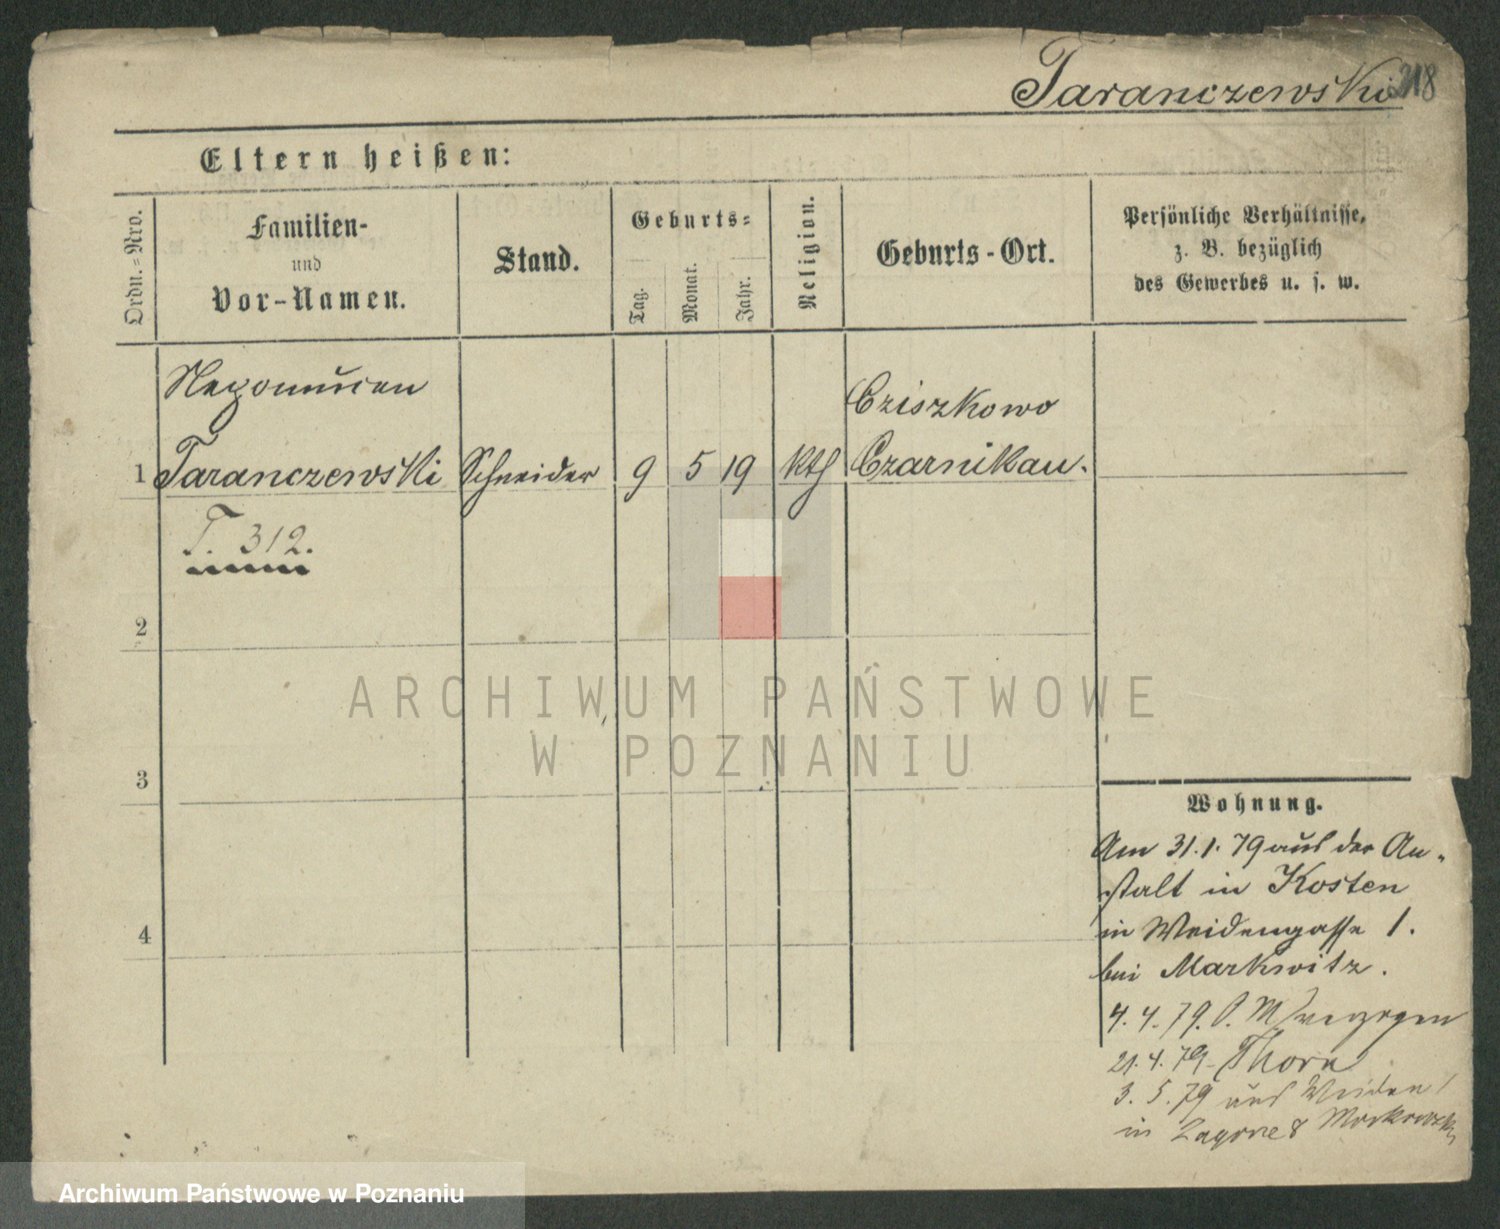 Taranczewski 218
Eltern heißen:
Ordn.=Nro.
Familien-
und
Vor-Namen.
Stand.
Geburts=
Tag.
Monat.
Jahr.
Religion.
Geburts-Ort.
Persönliche Verhältnisse,
z. B. bezüglich
des Gewerbes u. s. w.
Nepomucen
Cziszkowo
1 Taranczewski Schneider 9 5 19 kth Czarnikau.
T. 312.
2
ARCHIWUM PAŃSTWOWE
W POZNANIU
3
Wohnung.
Am 31.1.79 aus der An-
stalt in Kosten
in Weidengasse 1.
4
bei Markwitz.
4.4.79. verzogen
21.4.79. Thorn
3.5.79 aus Weiden 1
in Zagorze 8
Archiwum Państwowe w Poznaniu